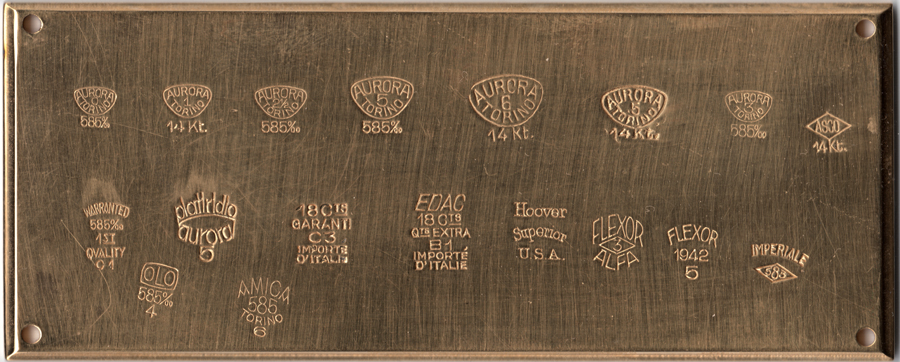 AURORA
TORINO
585‰
AURORA
1
TORINO
14 Kt.
AURORA
2½
TORINO
585‰
AURORA
5
TORINO
585‰
AURORA
6
TORINO
14 Kt.
AURORA
5
TORINO
14 Kt.
AURORA
TORINO
585‰
ASCO
14 Kt.
WARRANTED
585‰
1ST
QVALITY
C1
platiridio
aurora
5
18 CTS
GARANTI
C3
IMPORTÉ
D'ITALIE
EDAC
18 CTS
QTE EXTRA
B1
IMPORTÉ
D'ITALIE
Hoover
Superior
U.S.A.
FLEXOR
3
ALFA
FLEXOR
1942
5
IMPERIALE
585
OLO
585‰
4
AMICA
585
TORINO
6